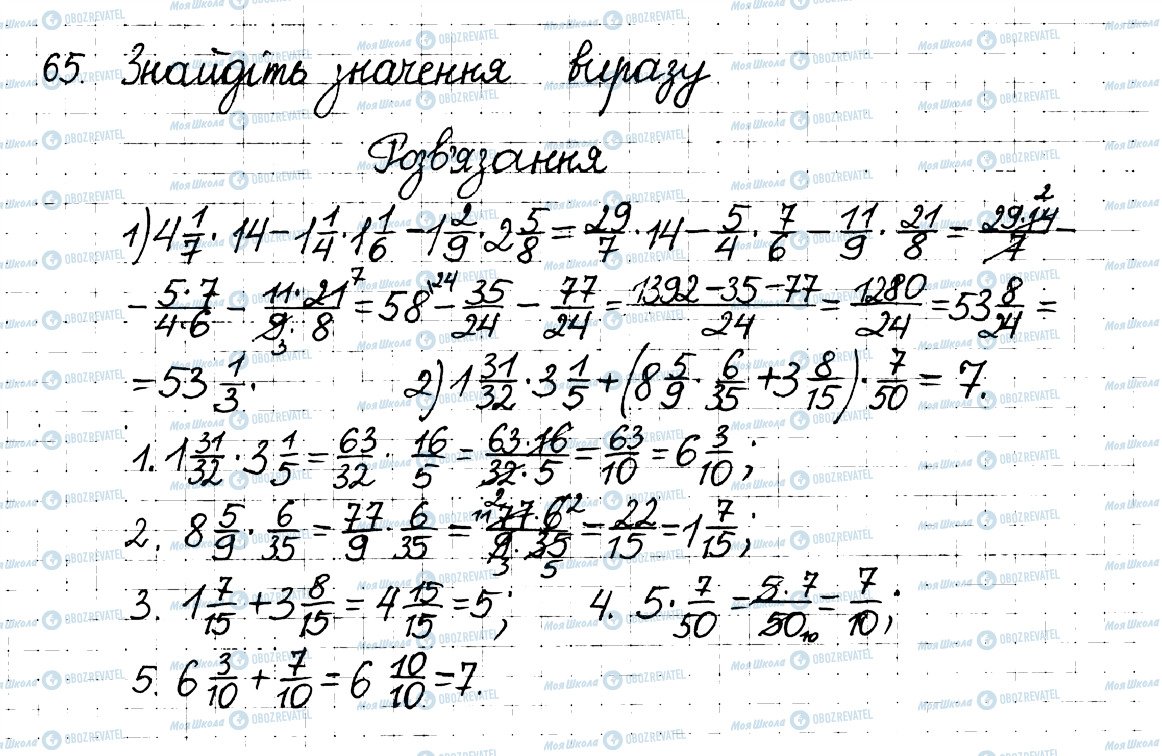 65. Знайдіть значення виразу
Розв'язання
1) 4 1/7 · 14 − 1 1/4 · 1 1/6 − 1 2/9 · 2 5/8 = 29/7 · 14 − 5/4 · 7/6 − 11/9 · 21/8 = 29·14/7 2 −
− 5·7/4·6 − 11·21/9·8 7 3 = 58 24 − 35/24 − 77/24 = 1392−35−77/24 = 1280/24 = 53 8/24 =
= 53 1/3. 2) 1 31/32 · 3 1/5 + (8 5/9 · 6/35 + 3 8/15) · 7/50 = 7.
1. 1 31/32 · 3 1/5 = 63/32 · 16/5 = 63·16/32·5 2 = 63/10 = 6 3/10;
2. 8 5/9 · 6/35 = 77/9 · 6/35 = 11 77·6 2/9·35 3 5 = 22/15 = 1 7/15;
3. 1 7/15 + 3 8/15 = 4 15/15 = 5; 4. 5 · 7/50 = 5·7/50 10 = 7/10;
5. 6 3/10 + 7/10 = 6 10/10 = 7.
Моя Школа OBOZREVATEL